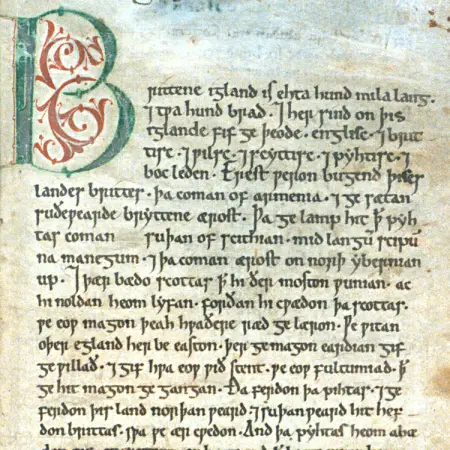 Brittene igland is ehta hund mila lang.
⁊ tƿa hund brad. ⁊ her sind on þis
iglande fif ge þeode. englisc. ⁊ brit
tisc. ⁊ ƿilsc. ⁊ scyttisc. ⁊ pyhtisc. ⁊
boc leden. Erest ƿeron bugend þises
landes brittes. þa coman of armenia. ⁊ ge sætan
suðeƿearde bryttene ærost. Þa ge lamp hit þ̵ pyh
tas coman suþan of scithian. mid langū scipū
na manegum. ⁊ þa coman ærost on norþ ybernian
up. ⁊ þær bædo scottas þ̵ hi ðer moston ƿunian. ac
hi noldan heom lyfan. forðan hi cƿædon þa scottas.
ƿe eoƿ magon þeah hƿaðere ræd ge læron. Ƿe ƿitan
oþer egland her be easton. þer ge magon eardian gif
ge ƿillað. ⁊ gif hƿa eoƿ ƿið stent. ƿe eoƿ fultumiað. þ̵
ge hit magon ge gangan. Ða ferdon þa pihtas. ⁊ ge
ferdon þis land norþan ƿeard. ⁊ suþan ƿeard hit hef
don brittas. sƿa ƿe ær cƿedon. And þa pyhtas heom abæ